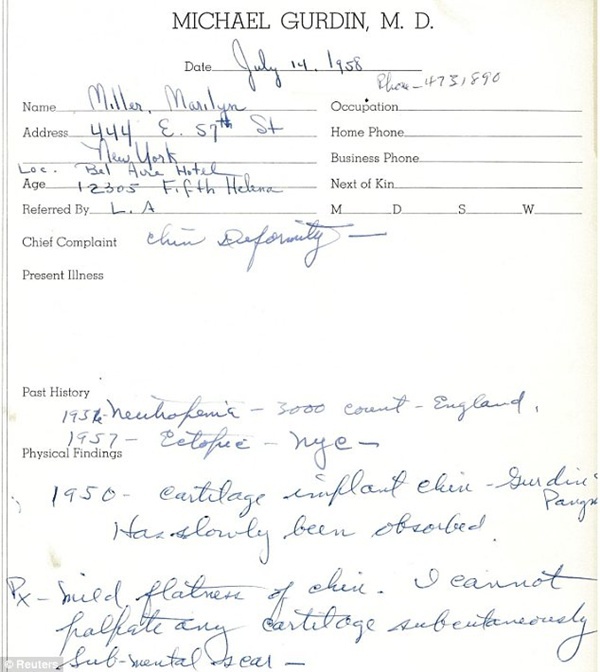 MICHAEL GURDIN, M. D.
Date July 14, 1958
Phone - 4731890
Name Miller, Marilyn
Occupation
Address 444 E. 57th St
Home Phone
New York
Business Phone
Loc. Bel Aire Hotel
Age 12305 Fifth Helena
Next of Kin
Referred By L.A
M D S W
Chief Complaint chin Deformity —
Present Illness
Past History
1956 - Neutropenia - 3000 count - England.
1957 - Ectopic - NYC -
Physical Findings
1950 - cartilage implant chin - Gurdin
Pangman
Has slowly been absorbed.
Px - mild flatness of chin. I cannot
palpate any cartilage subcutaneously
Sub-mental scar -
© Reuters